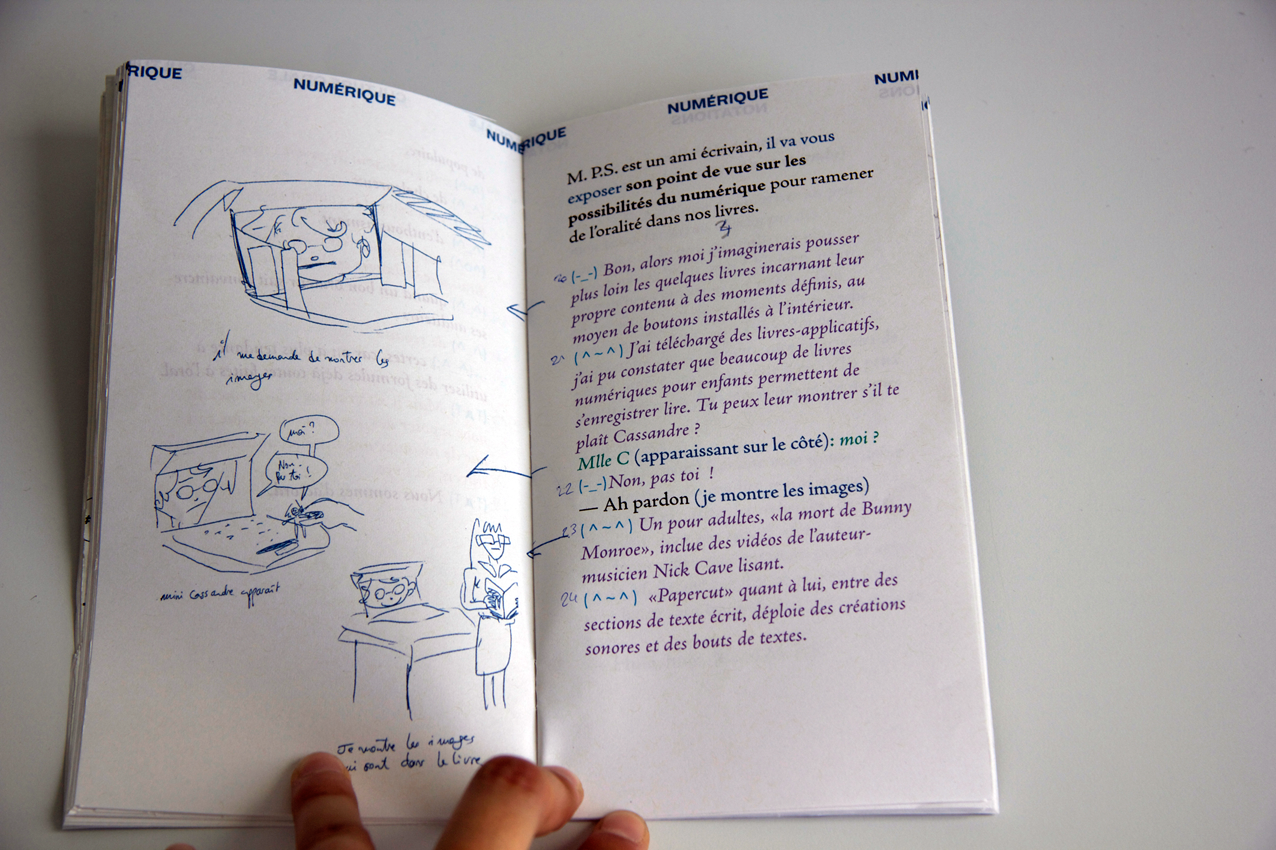 RIQUE
NUMÉRIQUE
NUMÉ
il me demande de montrer les
images
moi ?
Non.
Pas toi !
mini Cassandre apparaît
Je montre les images
qui sont dans le livre
RIQUE
NUMÉRIQUE
NUMI
M. P.S. est un ami écrivain, il va vous
exposer son point de vue sur les
possibilités du numérique pour ramener
de l'oralité dans nos livres.
20 (-_-) Bon, alors moi j'imaginerais pousser
plus loin les quelques livres incarnant leur
propre contenu à des moments définis, au
moyen de boutons installés à l'intérieur.
21 (^~^) J'ai téléchargé des livres-applicatifs,
j'ai pu constater que beaucoup de livres
numériques pour enfants permettent de
s'enregistrer lire. Tu peux leur montrer s'il te
plaît Cassandre ?
Mlle C (apparaissant sur le côté): moi ?
22 (-_-) Non, pas toi !
— Ah pardon (je montre les images)
23 (^~^) Un pour adultes, «la mort de Bunny
Monroe», inclue des vidéos de l'auteur-
musicien Nick Cave lisant.
24 (^~^) «Papercut» quant à lui, entre des
sections de texte écrit, déploie des créations
sonores et des bouts de textes.